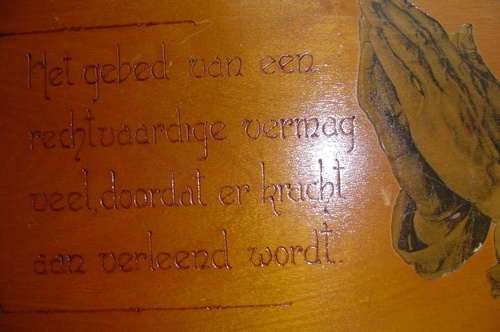 Het gebed van een
rechtvaardige vermag
veel, doordat er kracht
aan verleend wordt.